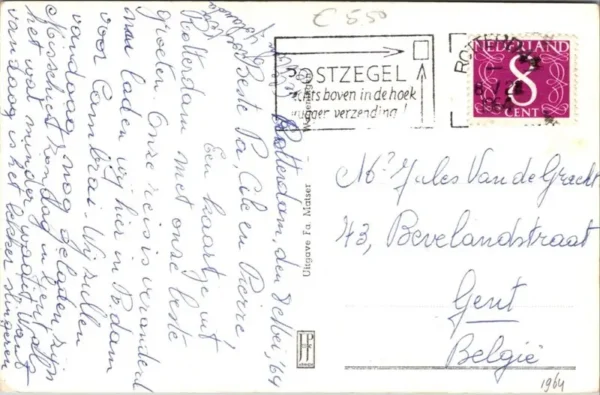 C 550
NEDERLAND
8
CENT
POSTZEGEL
rechts boven in de hoek
vlugger verzending!
Rotterdam, den 8 Mei '64
Beste Pa, Cile en Pierre
Een kaartje uit
Rotterdam met onze beste
groeten. Onze reis is veranderd
nu laden wij hier in R'dam
voor Cambrai. Wij zullen
vandaag nog geladen zijn
Misschien zondag in Gent als
het wat minder waait want
vandaag is het lekker slingeren
Uitgave Fa. Muntser
Mr Jules Van de Gracht
43, Bevelandstraat
Gent
België
1964